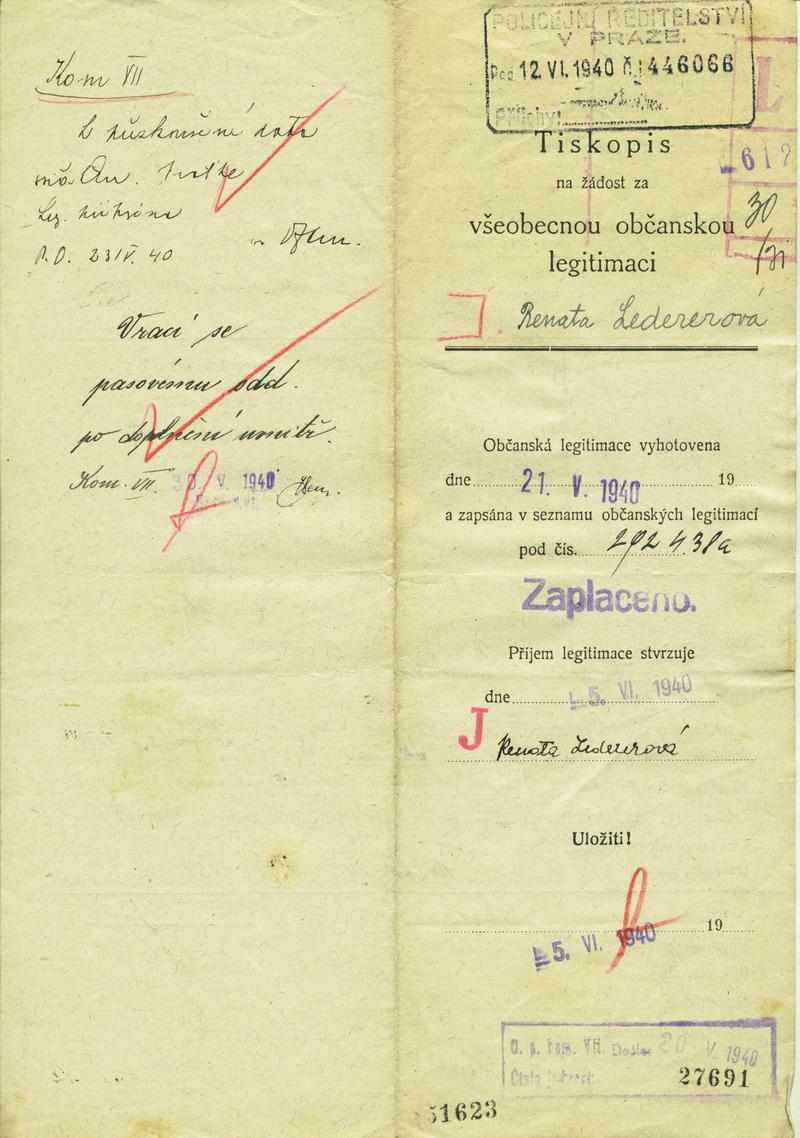 Kom VII
P.O. 23/V. 40
Vrací se
pasovému odd.
po doplnění
Kom. VII. 30. V. 1940
POLICEJNÍ ŘEDITELSTVÍ
V PRAZE.
12. VI. 1940 Č.j. 446066
Přílohy:
L
617
30
Tiskopis
na žádost za
všeobecnou občanskou
legitimaci
Renata Ledererová
Občanská legitimace vyhotovena
dne 21. V. 1940 19
a zapsána v seznamu občanských legitimací
pod čís.
Zaplaceno.
Příjem legitimace stvrzuje
dne 5. VI. 1940
J Renata Ledererová
Uložiti!
5. VI. 1940 19
Došlo 20 V. 1940
27691
51623